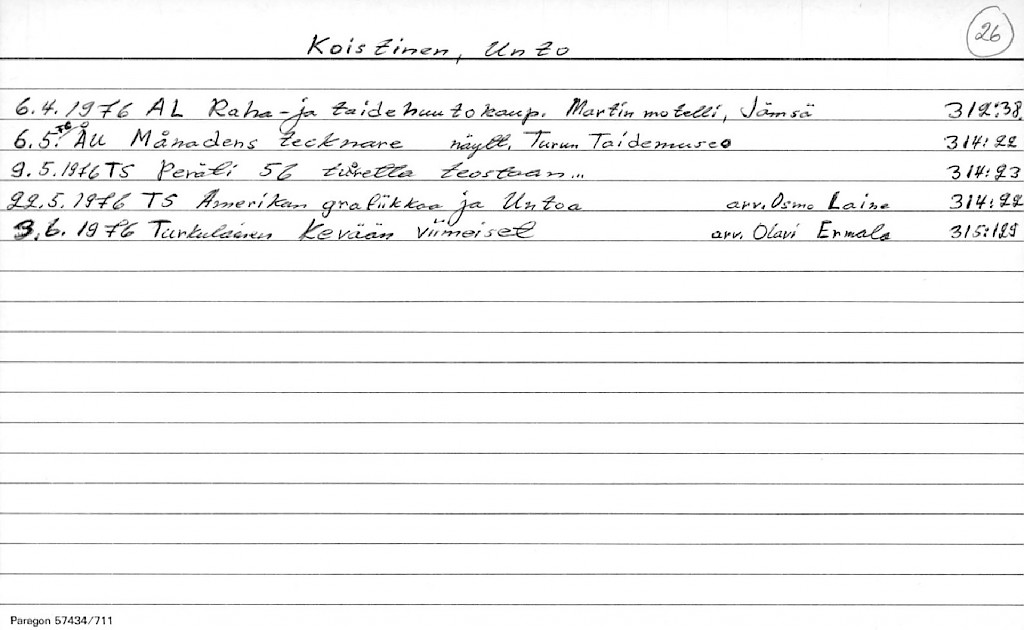 Koistinen, Unto
26
6.4. 1976 AL Raha- ja taidehuutokaup. Martin motelli, Jämsä 312:38
6.5. 76 ÅU Månadens tecknare näytt. Turun Taidemuseo 314:22
9.5.1976 TS Peräti 56 teostaan... 314:23
22.5.1976 TS Amerikan grafiikkaa ja Untoa arv. Osmo Laine 314:22
3.6. 1976 Turkulainen Kevään viimeiset arv. Olavi Ermala 315:129
Paragon 57434/711